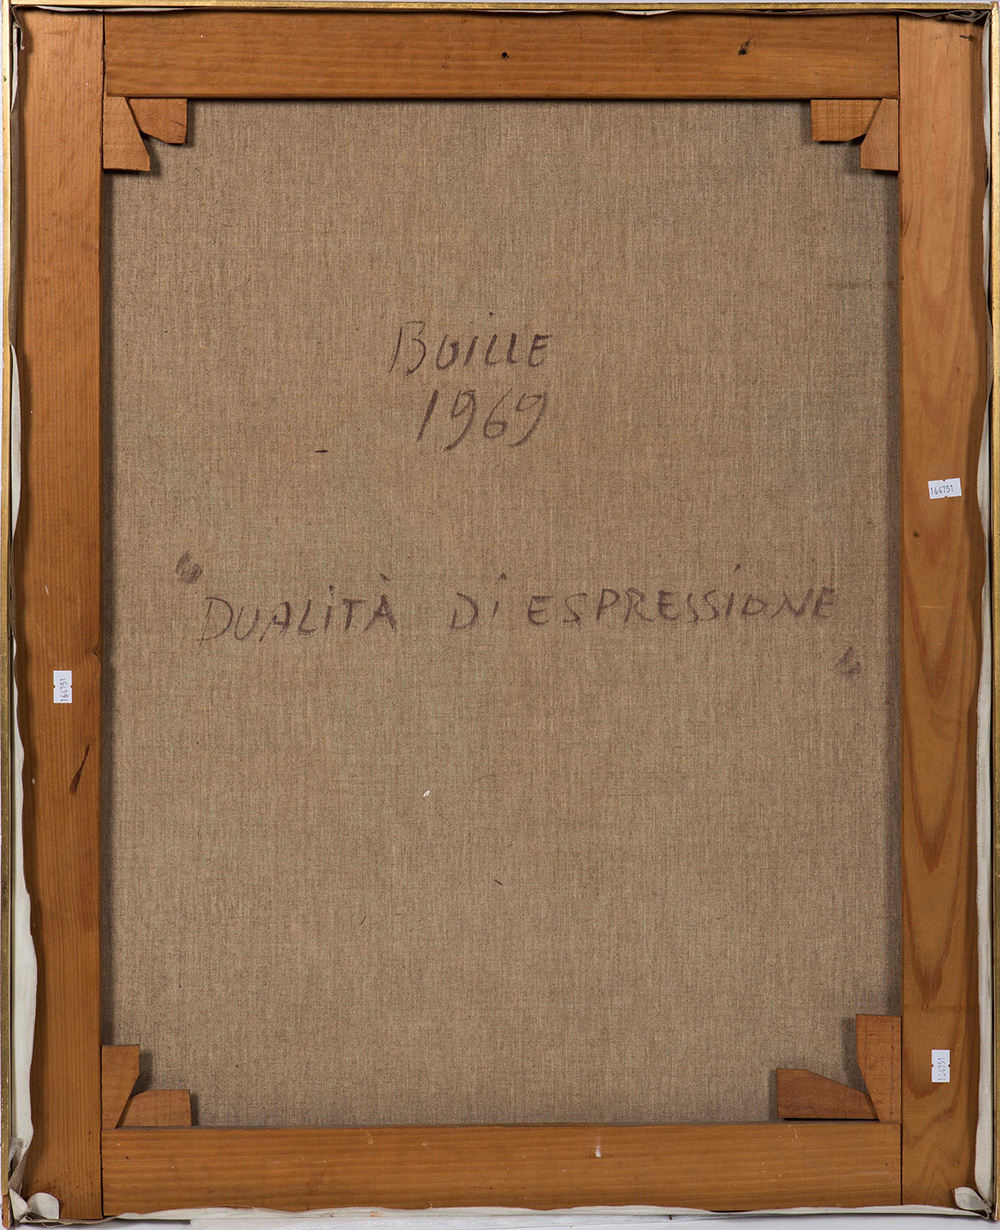 BOILLE
1969
"DUALiTÀ Di ESPRESSiONE"
164751
164751
164751